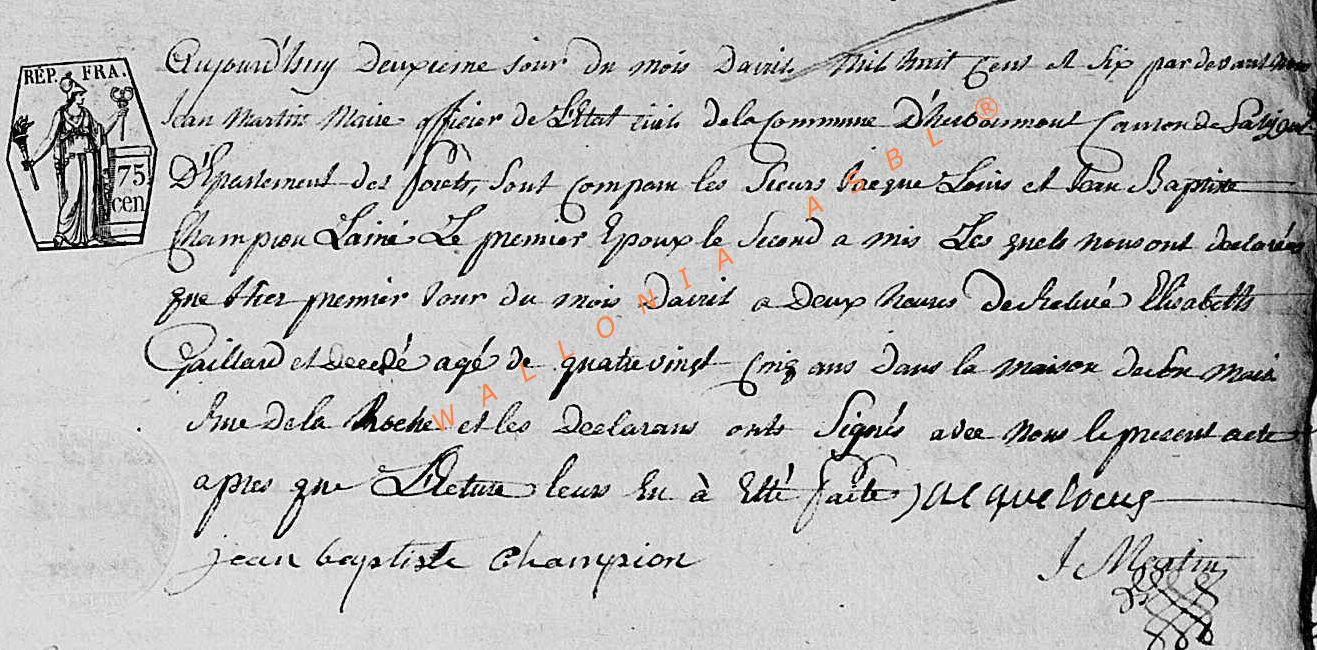 RÉP. FRA.
75
cen
Aujourd'huy deuxieme jour du mois d'avril mil huit cens et six par devant nous
Jean Martin Maire officier de L'Etat civil de la Commune D'Herbeumont Canton de
D'Epartement des forets, sont comparu les sieurs Louis et Jean Baptiste
Champion L'ainé Le premier Epoux le second a mis Les quels nous ont declarées
que Hier premier Jour du mois d'avril a deux heures de Relevé Elisabeth
Gaillard et decedé agé de quatre vingt cinq ans dans la maison de son mari
Rue de la Roche et les declarans onts signés avec nous le present acte
apres que Lecture leurs En à Etté faite Jacque Locus
jean baptiste champion J Martin
WALLONIA ASBL ®